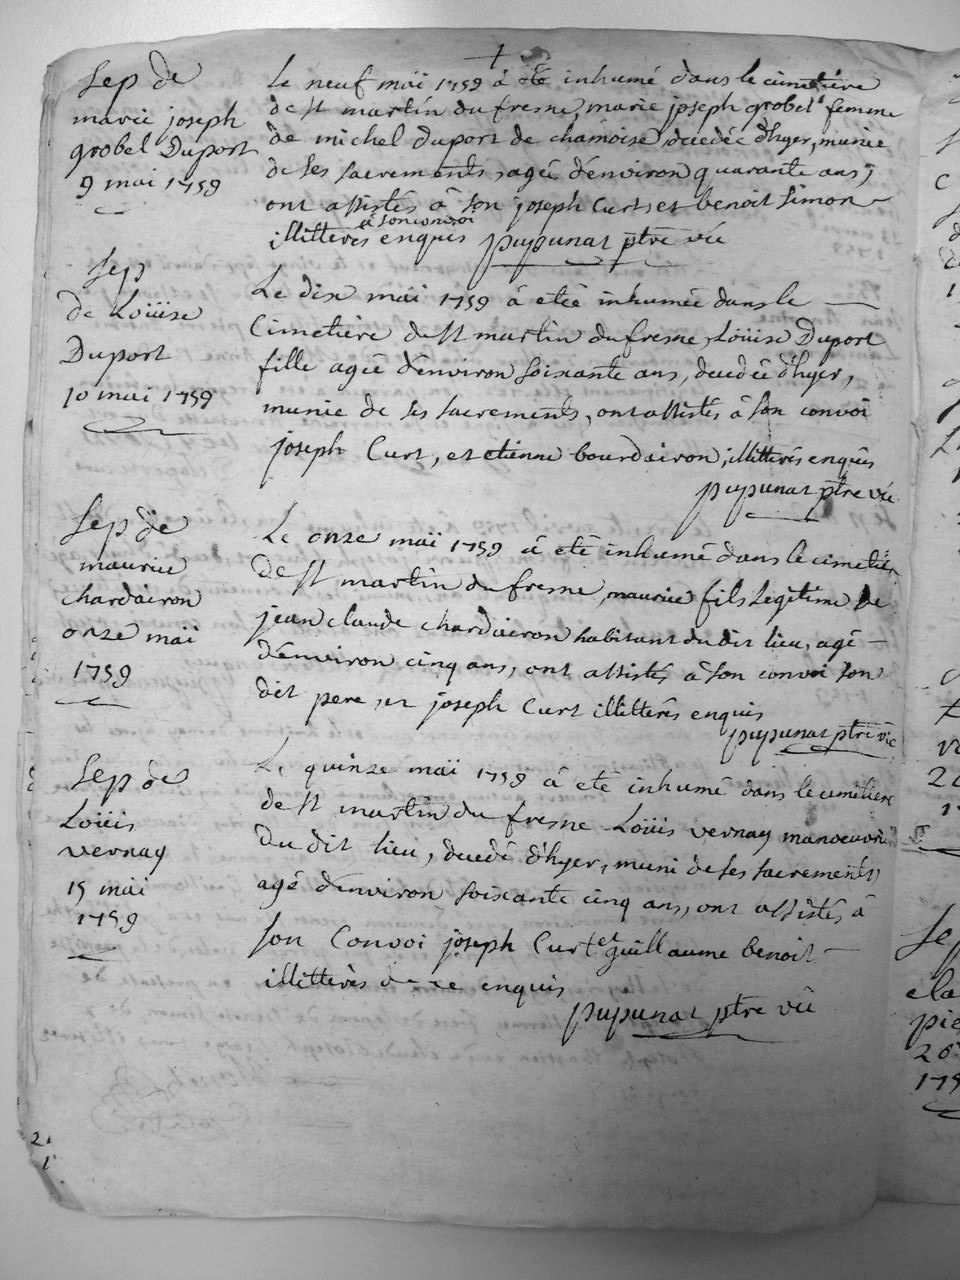 Sep de
marie joseph
grobel Duport
9 mai 1759
Le neuf mäi 1759 â été inhumé dans le cimetiére
de st martin du fresne, marie joseph grobel femme
de michel duport de chamoise, decedée d'hyer, munie
de ses sacrements, agée d'environ quarante ans,
ont assistés â son joseph Curt, et benoit Simon
â son convoi
illitterés enquis pupunat ptre vic
Sep
de Loüise
Duport
10 mai 1759
Le dix mäi 1759 â etée inhumée dans le
Cimetière de st martin du fresne, Loüise Duport
fille agée d'environ soixante ans, decedée d'hyer,
munie de ses sacrements, ont assistés â son convoi
joseph Curt, et etienne bourdairon, illitterés enquis
pupunat ptre vic
Sep de
maurice
chardairon
onze mäi
1759
Le onze mäi 1759 â eté inhumé dans le cimetier
de st martin du fresne, maurice fils Legitime de
jean claude chardairon habitant du dit lieu, agé
d'environ cinq ans, ont assistés â son convoi son
dit pere, et joseph Curt illitterés enquis
pupunat ptre vic
Sep de
Loüis
vernay
15 mäi
1759
Le quinze mäi 1759 â eté inhumé dans le cimetiere
de st martin du fresne Loüis vernay manoeuvre
du dit lieu, decedé d'hyer, muni de ses sacrements,
agé d'environ soixante cinq ans, ont assistés â
son Convoi joseph Curt et guillaume benoit
illitterés de ce enquis
pupunat ptre vic